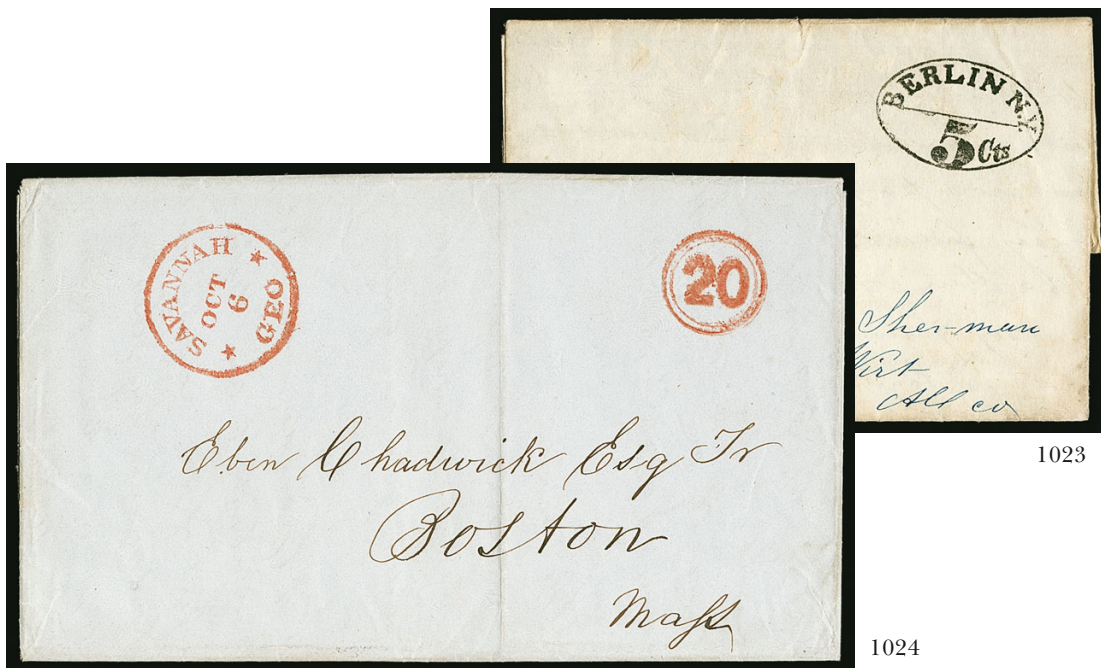 BERLIN N.Y.
5 Cts
Sher-man
Wirt
All co
1023
SAVANNAH ★ GEO ★
OCT
6
20
Eben Chadwick Esq Tr
Boston
Mass
1024